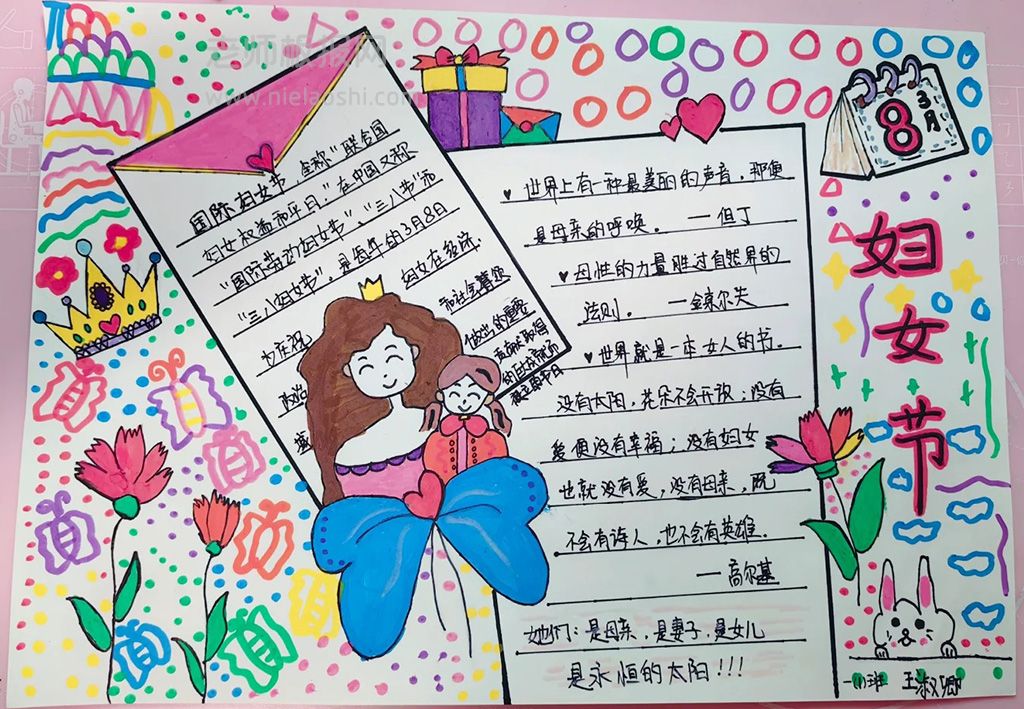 老师板报网
www.nielaoshi.com
国际妇女节,全称“联合国
妇女权益和平日”.在中国又称
“国际劳动妇女节”、“三八节”和
“三八妇女节”.是每年的3月8日
为在祝 妇女在经济.
政治 和社会等领
域 做出的重要
贡献和取得
的巨大成就而
设立的节日
♥ 世界上有一种最美丽的声音,那便
是母亲的呼唤. —但丁
♥ 母性的力量胜过自然界的
法则. —金索尔夫
♥ 世界就是一本女人的书.
没有太阳,花朵不会开放;没有
爱便没有幸福;没有妇女
也就没有爱,没有母亲,既
不会有诗人,也不会有英雄.
—高尔基
她们:是母亲,是妻子,是女儿
是永恒的太阳!!!
3月
8
妇
女
节
一(1)班 王淑卿